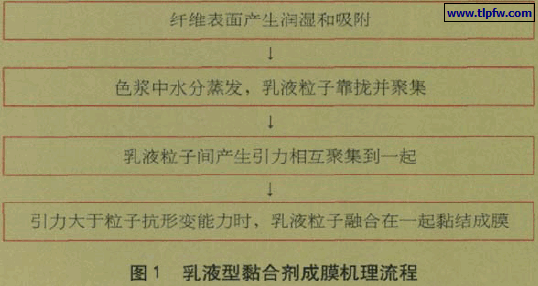 www.tlpfw.com
纤维表面产生润湿和吸附
↓
色浆中水分蒸发，乳液粒子靠拢并聚集
↓
乳液粒子间产生引力相互聚集到一起
↓
引力大于粒子抗形变能力时、乳液粒子融合在一起黏结成膜
图1 乳液型黏合剂成膜机理流程